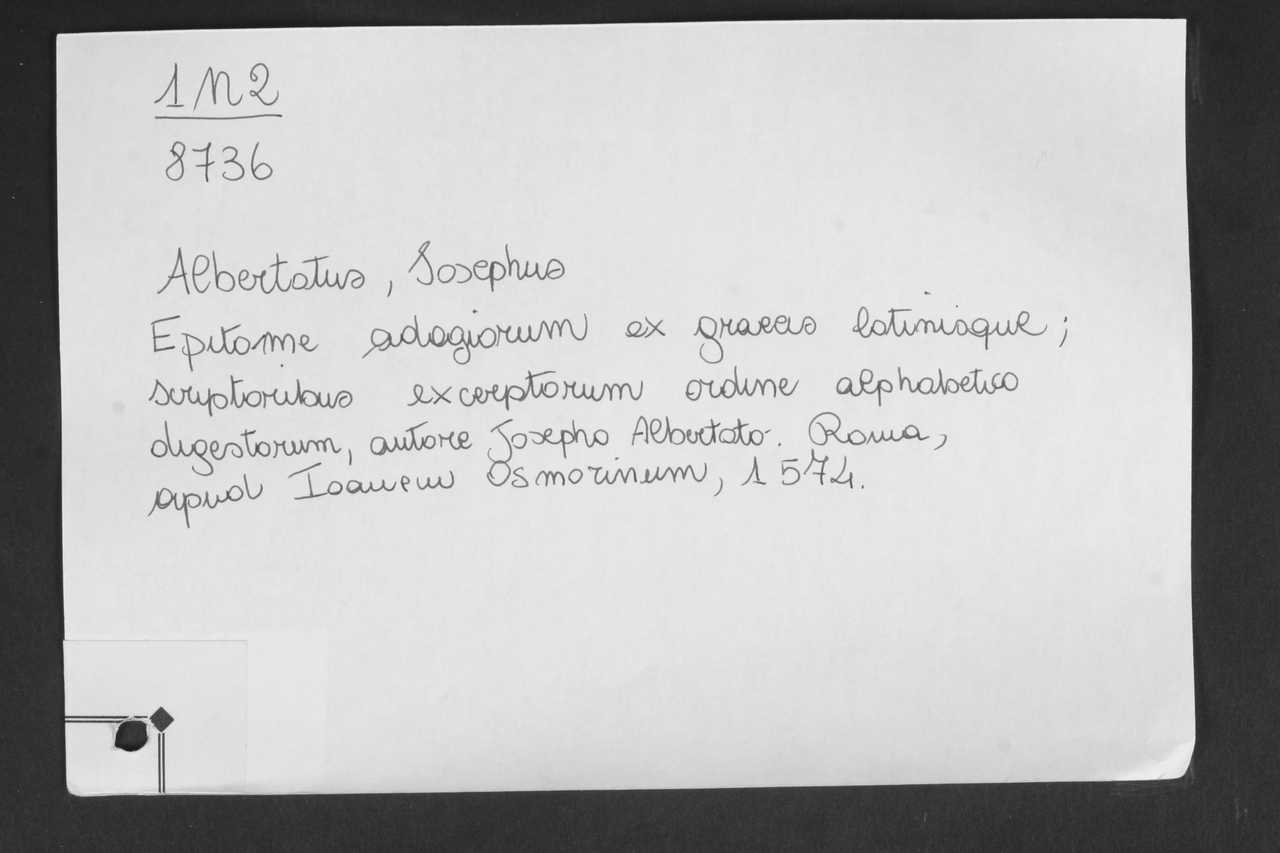 1M2
8736
Albertatus, Josephus
Epitome adagiorum ex graecis latinisque;
scriptoribus excerptorum ordine alphabetico
digestorum, autore Josepho Albertato. Roma,
apud Ioanem Osmarinum, 1574.